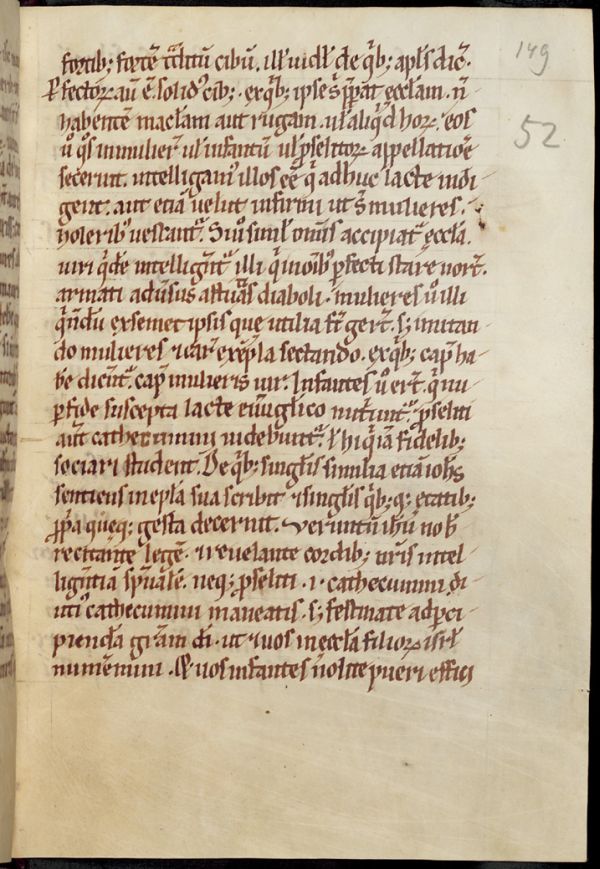 149
52
fortib; fortē t̄ctatū cibū. illud de q̄b; apl's dic̄.
Pfector̄ aū ē solid' cib;. ex q̄b; ipse s̄ pparat eccl̄am. n̄
habentē macl̄am aut rugam. ul' aliq̄d hor̄. eos
u° q°s in mulier̄ ul' infantū ul' p̄selitor̄ appellatiōe
fecerit. intelligam' illos eē q̄ adhuc lacte indi
gent. aut etiā uelut infirmi ut s̄ mulieres.
holerib' uescant'. Siū simul omīs accipiat' eccl̄a.
uiri q̄de intelligūt' illi qui oīb' pfecti stare nor̄t.
armati aduersus astutias diaboli. mulieres u° illi
q̄ nōdū ex semet ipsis que utilia s̄t gerūt. s; imitan
do mulieres uar̄ exēpla sectando. ex q̄b; cap̄ ha
b̄e dicūt'. cap̄ mulieris uir. Infantes u° er̄t. q̄ nu
p fide suscepta lacte euuglico nutriūt'. pseliti
aūt cathecumini uidebunt'. ul' hi q̄ iā fidelib;
sociari student. De q̄b; singl'is similia etiā ioh̄s
sentiens in epl'a sua scribit & singl'is q̄b;q; etatib;
ppa queq; gesta decernit. Veruntū ih̄u nob̄
recitante legē. & reuelante cordib; ur̄is intel
ligentiā sp̄ualē. neq; pseliti .i. cathecumini di
uti° cathecumini maneatis. s; festinate ad pci
piendā gr̄am di. ut & uos in eccl̄a filior̄ isrl'
numeremini. Et uos infantes nolite pueri effici